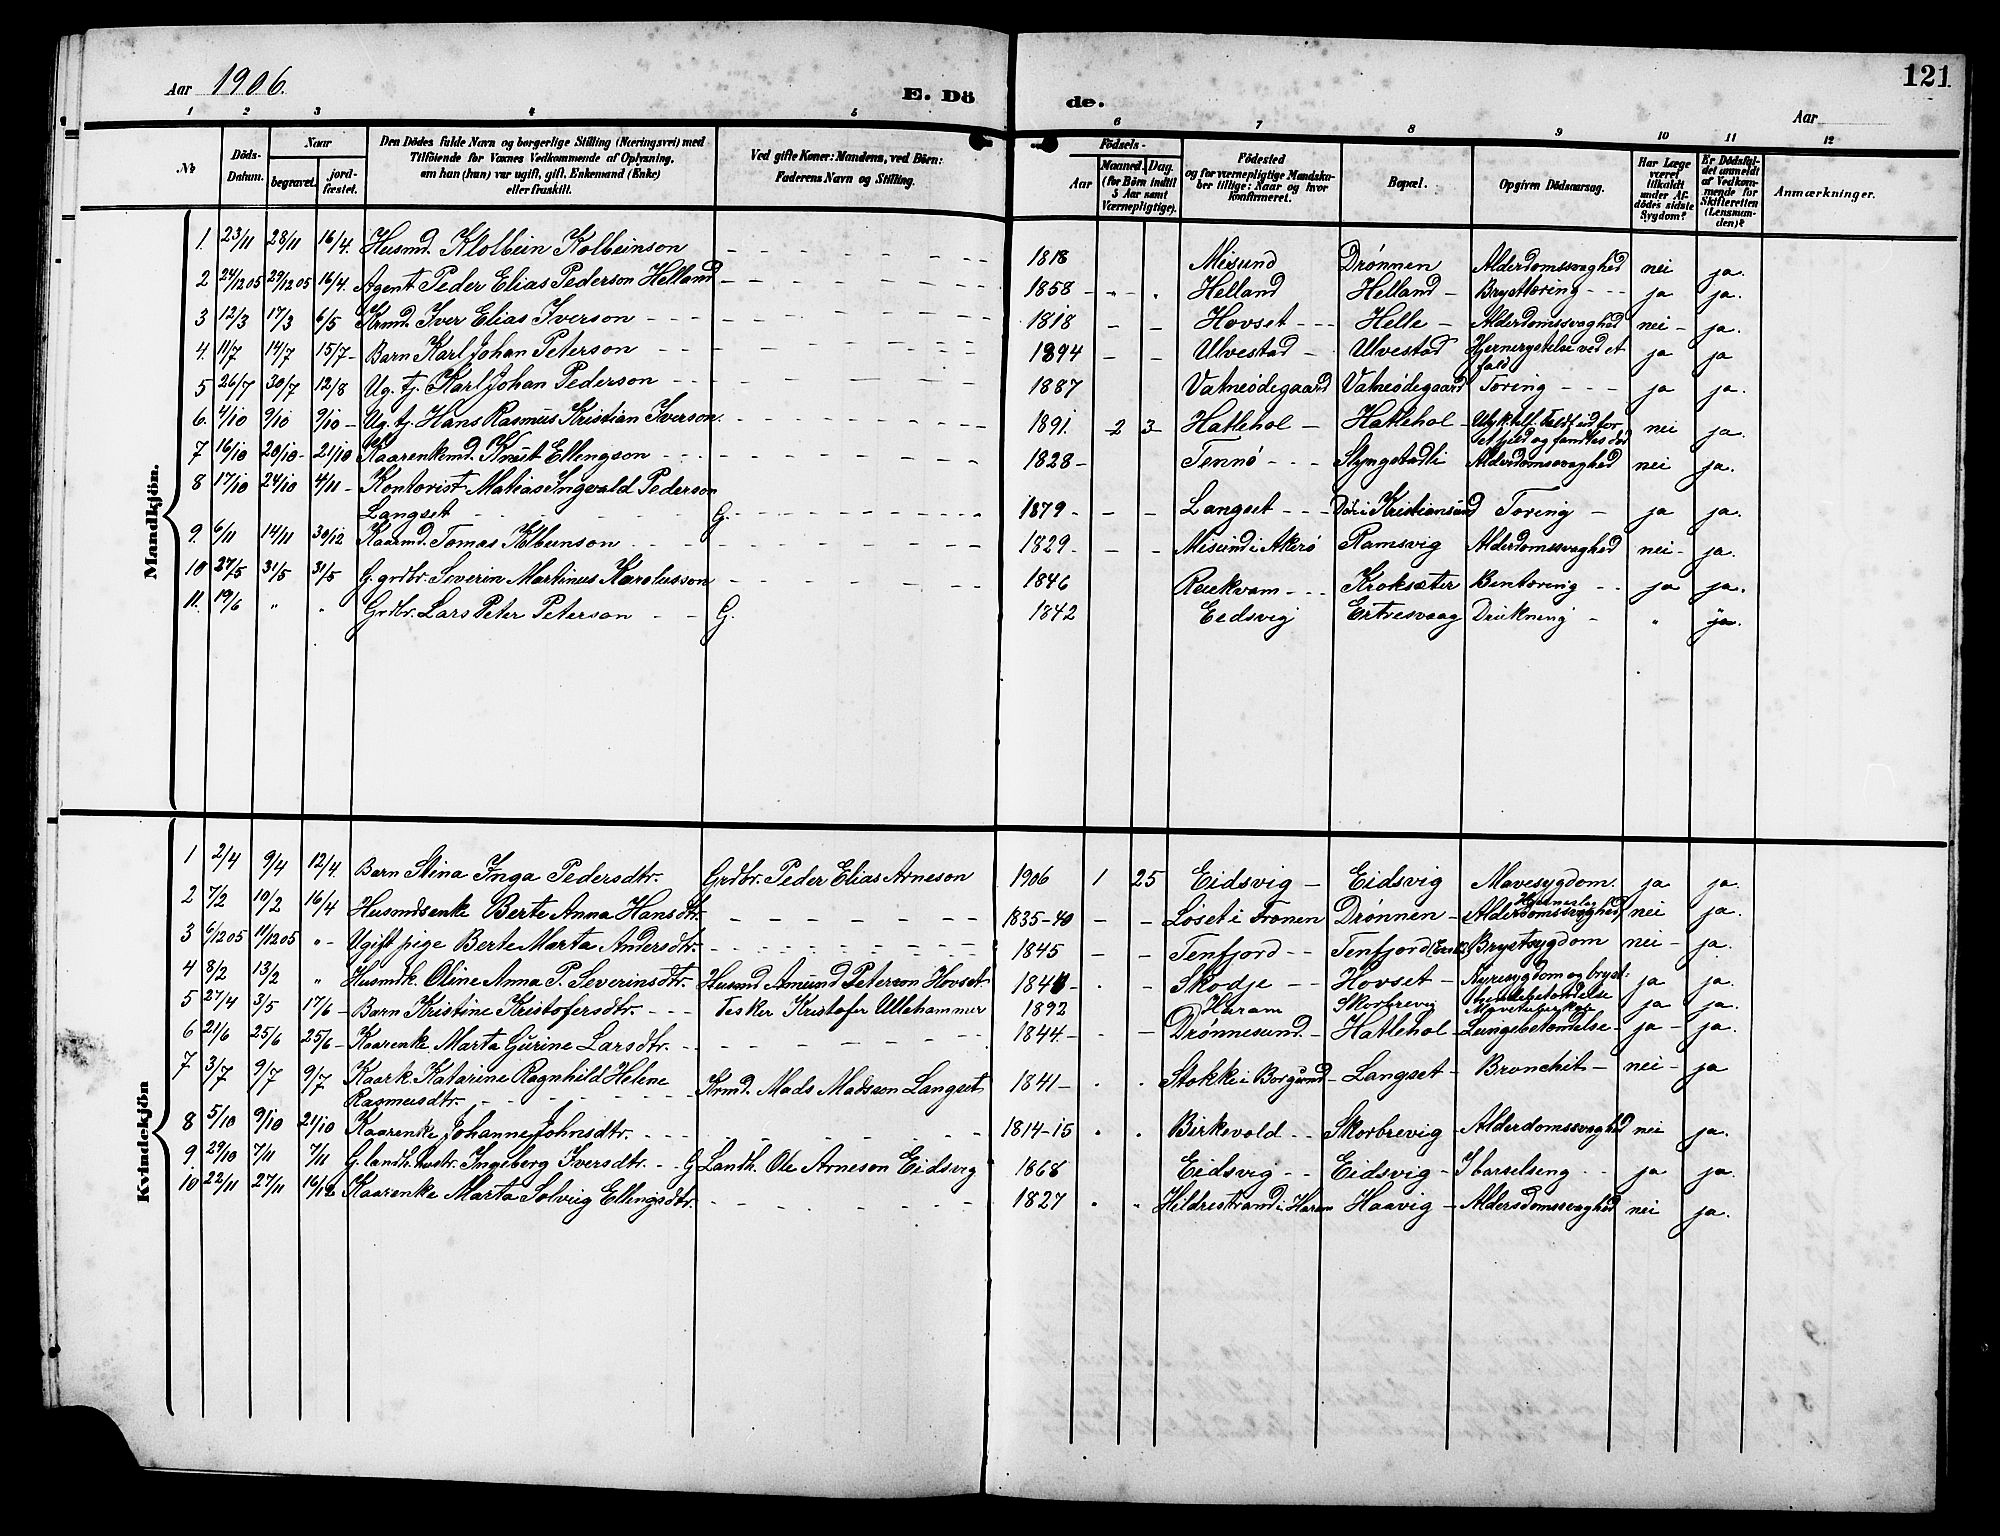 Aar 1906. E. Dö de. Aar 121
1 2 3 4 5 6 7 8 9 10 11 12
No Döds-Datum. Naar begravet. jord-fæstet. Den Dödes fulde Navn og borgerlige Stilling (Næringsvei) med Tilföiende for Voxnes Vedkommende af Oplysning, om han (hun) var ugift, gift, Enkemand (Enke) eller fraskilt. Ved gifte Koner: Mandens, ved Börn: Faderens Navn og Stilling. Födsels- Aar Maaned. Dag. (for Börn indtil 5 Aar samt Værnepligtige). Födested og for værnepligtige Mandskaber tillige: Naar og hvor konfirmeret. Bopæl. Opgiven Dödsaarsag. Har Læge været tilkaldt under Afdödes sidste Sygdom? Er Dödsfaldet anmeldt af Vedkommende for Skifteretten (Lensmanden)? Anmærkninger.
Mandkjön.
1 23/11 28/11 16/4. Husmd. Klolbein Kolbeinson 1818 Misund Drønnen Alderdomssvaghed nei ja.
2 24/12 05 29/12 05 16/4. Agent Peder Elias Pederson Helland 1858 Helland Helland Brysttæring ja ja.
3 12/3 17/3 6/5 Krmd. Iver Elias Iverson 1818 Hovset Helle Alderdomssvaghed nei ja.
4. 11/7 14/7 15/7 Barn Karl Johan Peterson 1894 Ulvestad Ulvestad Hjernerystelse ved et fald ja ja
5 26/7 30/7 12/8 Ug. tj. Karl Johan Pederson 1887 Vatneødegaard Vatneødegaard Tæring ja ja.
6. 4/10 9/10 9/10 Ug. tj. Hans Rasmus Kristian Iverson. 1891. 2 3 Hatlehol Hatlehol Ulyktilf. Faldt ud for et fjeld og fandtes død nei ja.
7 16/10 20/10 21/10 Kaarenkemd. Knut Ellingson 1828 Tennø Slyngstadli Alderdomssvaghed nei ja.
8 17/10 24/10 4/11 Kontorist Matias Ingvald Pederson
Langset G. 1879 Langset Død i Kristiansund Tæring ja ja.
9. 6/11 14/11 30/12 Kaarmd. Tomas Kolbeinson 1829 Misund i Akerø Ramsvig Alderdomssvaghed nei ja.
10 27/5 31/5 31/5 G. grdbr. Severin Martinus Karolusson 1846 Reiekvam Kroksæter Bentæring ja ja.
11. 19/6 " " Grdbr. Lars Peter Peterson G. 1842 Eidsvig Ertresvaag Drukning " ja.
Kvindekjön
1 2/4 9/4 12/4. Barn Stina Inga Pedersdtr. Grdbr. Peder Elias Arneson 1906 1 25 Eidsvig Eidsvig Mavesygdom. ja ja.
2 7/2 10/2 16/4 Husmdsenke Berte Anna Hansdtr. 1835-40 Løset i Fronen Drønnen Alderdomssvaghed nei ja.
3 6/12 05 11/12 05 " Ugift pige Berte Marta Andersdtr. 1845 Tenfjord Tenfjord Brystsygdom nei ja.
4 8/2 13/2 " Husmdk. Oline Anna P. Severinsdtr. Husmd Amund Peterson Hovset 1841 Skodje Hovset Nyresygdom og bryst-
hindebetændelse ja ja.
5 27/4 3/5 17/6 Barn Kristine Kristofersdtr. Fisker Kristofer Ullehammer 1892 Haram Skorbrevig Mavetuberkler ja ja.
6 21/6 25/6 25/6 Kaarenke. Marta Gurine Larsdtr. 1844. Drønnesund Hatlehol Lungebetændelse ja ja.
7 3/7 9/7 9/7 Kaark. Katarine Ragnhild Helene
Rasmusdtr. Krmd. Mads Madsson Langset 1841 Stokke i Borgund Langset Bronchit nei ja
8 5/10 9/10 21/10 Kaarenke Johanne Johnsdtr. 1814-15 Birkevold Skorbrevig Alderdomssvaghed nei ja.
9. 29/10 7/11 7/11 G. landh. hustr. Ingeborg Iversdtr. G Landh. Ole Arneson Eidsvig 1868 Eidsvig Eidsvig I barselseng ja ja.
10 22/11 27/11 16/12 Kaarenke Marta Solveig Ellingsdtr. 1827 Hildrestrand i Haram Haavig Aldersdomssvaghed nei ja.